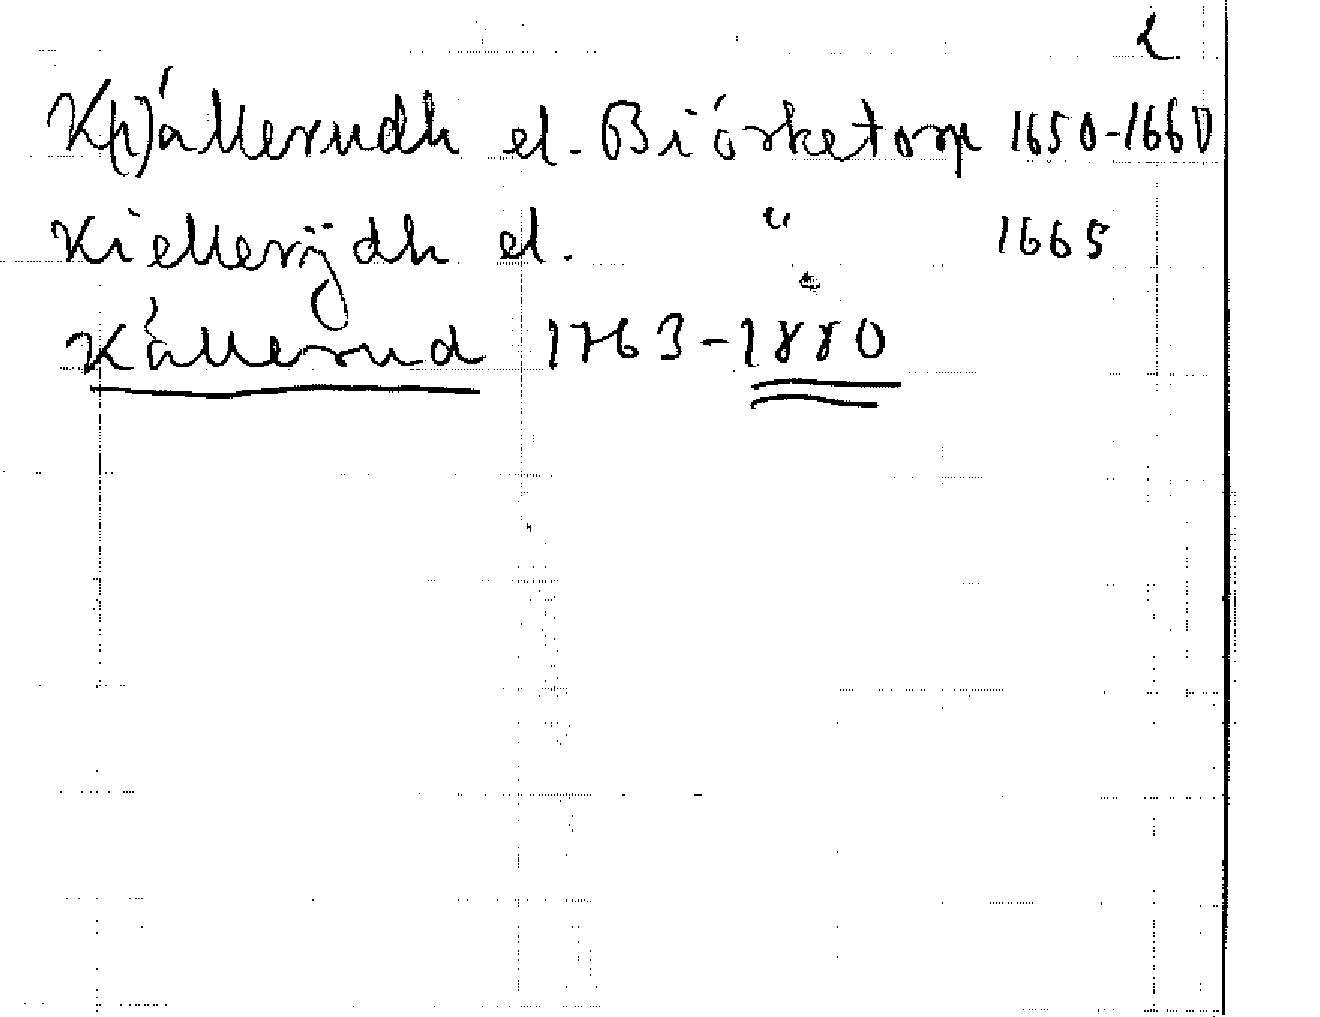 2
K(i)ällerudh el. Biörketorp 1650-1660
Kiellerÿdh el. " 1665
Källerud 1763-1880